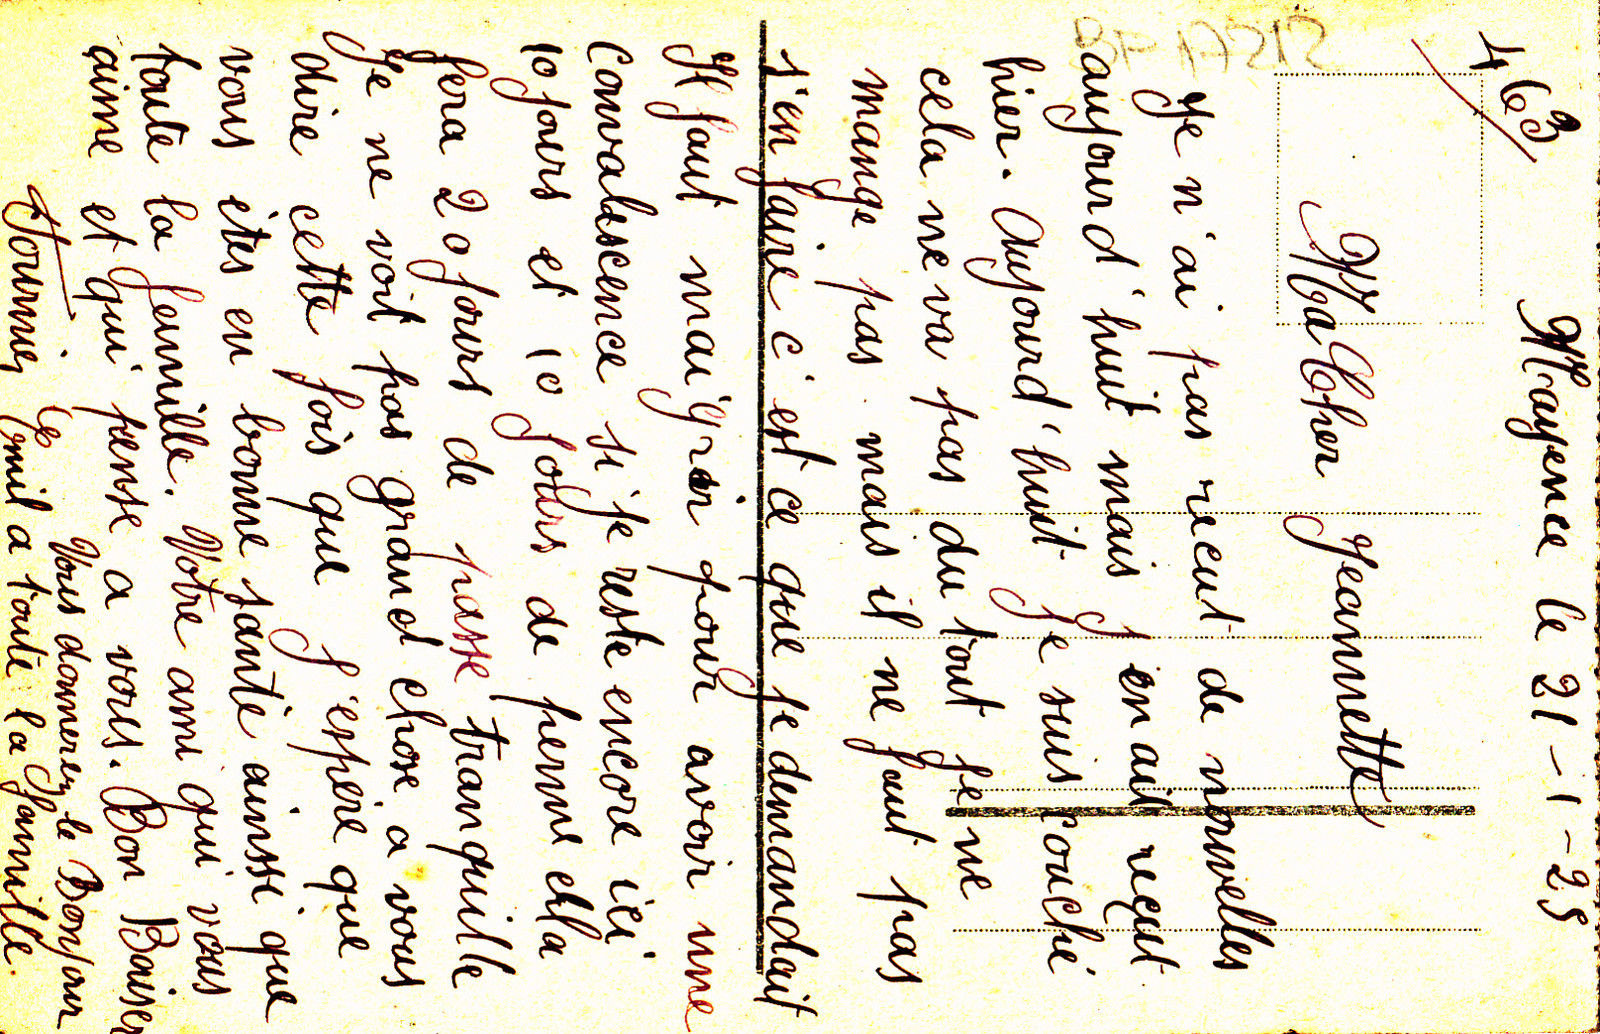 463
Mayence le 21-1-25
BP 17212
Ma Cher Jeannette
Je n'ai pas recut de nouvelles
aujourd'huit mais j'en ait reçut
hier. Aujourd'huit Je suis couché
cela ne va pas du tout je ne
mange pas mais il ne faut pas
s'en faire c'est ce que je demandait
Il faut maigrir pour avoir une
Convalescence si je reste encore ici
10 jours et 10 Jours de penne cela
fera 20 jours de passe tranquille
Je ne voit pas grand chose a vous
dire cette fois que J'espère que
vous êtes en bonne santé ainsse que
toute la famille. Votre ami qui vous
aime et qui pense a vous. Bon Baiser
Vous donnerez le Bonjour
Fournier Emil a toute la Famille.